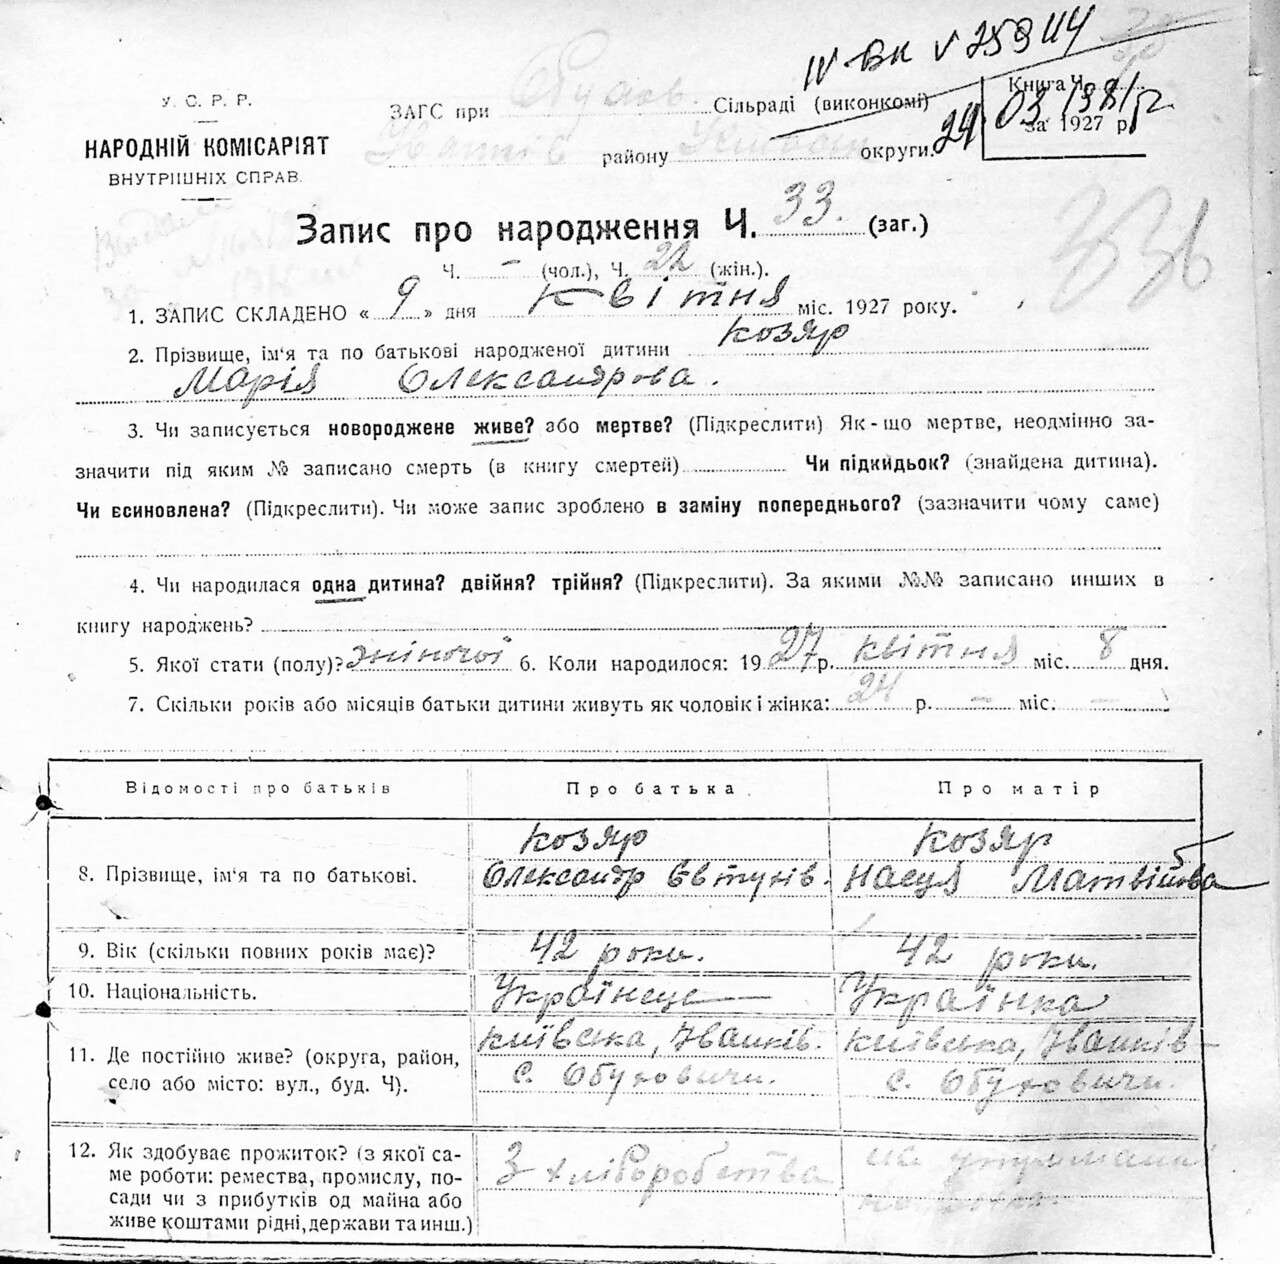 У. С. Р. Р.
НАРОДНІЙ КОМІСАРІЯТ
ВНУТРІШНІХ СПРАВ.
ЗАГС при Обухов. Сільраді (виконкомі)
Іванків району округи.
Книга Ч.
за 1927 р.
Запис про народження Ч. 33. (заг.)
Ч. – (чол.), Ч. 22 (жін.).
1. ЗАПИС СКЛАДЕНО « 9 » дня Квітня міс. 1927 року.
2. Прізвище, ім'я та по батькові народженої дитини Козяр
Марія Олександрова.
3. Чи записується новороджене живе? або мертве? (Підкреслити) Як-що мертве, неодмінно за-
значити під яким № записано смерть (в книгу смертей) Чи підкидьок? (знайдена дитина).
Чи єсиновлена? (Підкреслити). Чи може запис зроблено в заміну попереднього? (зазначити чому саме)
4. Чи народилася одна дитина? двійня? трійня? (Підкреслити). За якими №№ записано инших в
книгу народжень?
5. Якої стати (полу)? жіночої 6. Коли народилося: 1927 р. квітня міс. 8 дня.
7. Скільки років або місяців батьки дитини живуть як чоловік і жінка: 24 р. – міс. –
Відомості про батьків Про батька Про матір
8. Прізвище, ім'я та по батькові. Козяр Олександр Євтухів. Козяр Насця Матвійова
9. Вік (скільки повних років має)? 42 роки. 42 роки.
10. Національність. Українець Українка
11. Де постійно живе? (округа, район, Київська, Іванків. Київська, Іванків–
село або місто: вул., буд. Ч). с. Обуховичи. с. Обуховичи.
12. Як здобуває прожиток? (з якої са-
ме роботи: ремества, промислу, по- З хліборобства на утриманні
сади чи з прибутків од майна або
живе коштами рідні, держави та инш.)